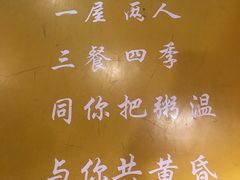 一屋两人
三餐四季
同你把粥温
与你共黄昏